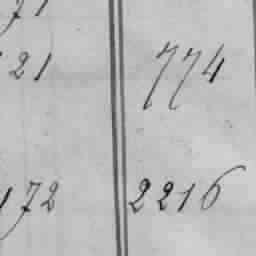 71
21 774
172 2216